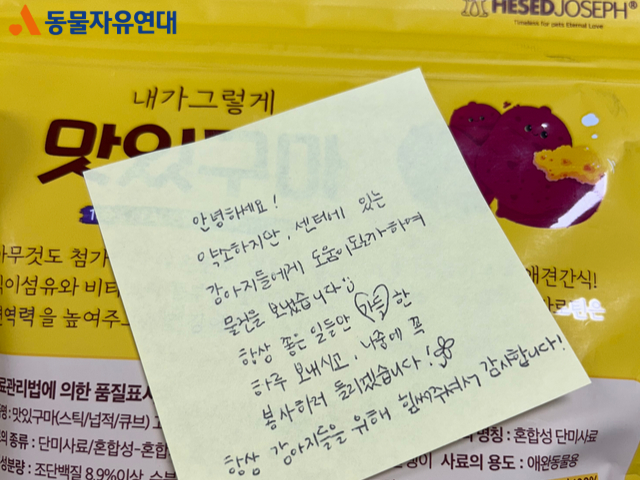 동물자유연대
HESEDJOSEPH®
Timeless for pets Eternal Love
내가그렇게
맛있
안녕하세요!
약소하지만, 센터에 있는
강아지들에게 도움이되고자하여
물건을 보냈습니다
항상 좋은 일들만 가득한
하루 보내시고, 나중에 꼭
봉사하러 들리겠습니다!
항상 강아지들을 위해 힘써주셔서 감사합니다!
아무것도 첨가
식이섬유와 비타
면역력을 높여주
애견간식!
료관리법에 의한 품질표시
명 : 맛있구마(스틱/넙적/큐브) 고
의 종류 : 단미사료/혼합성-혼합
성분량 : 조단백질 8.9%이상, 수분
명칭 : 혼합성 단미사료
사료의 용도 : 애완동물용